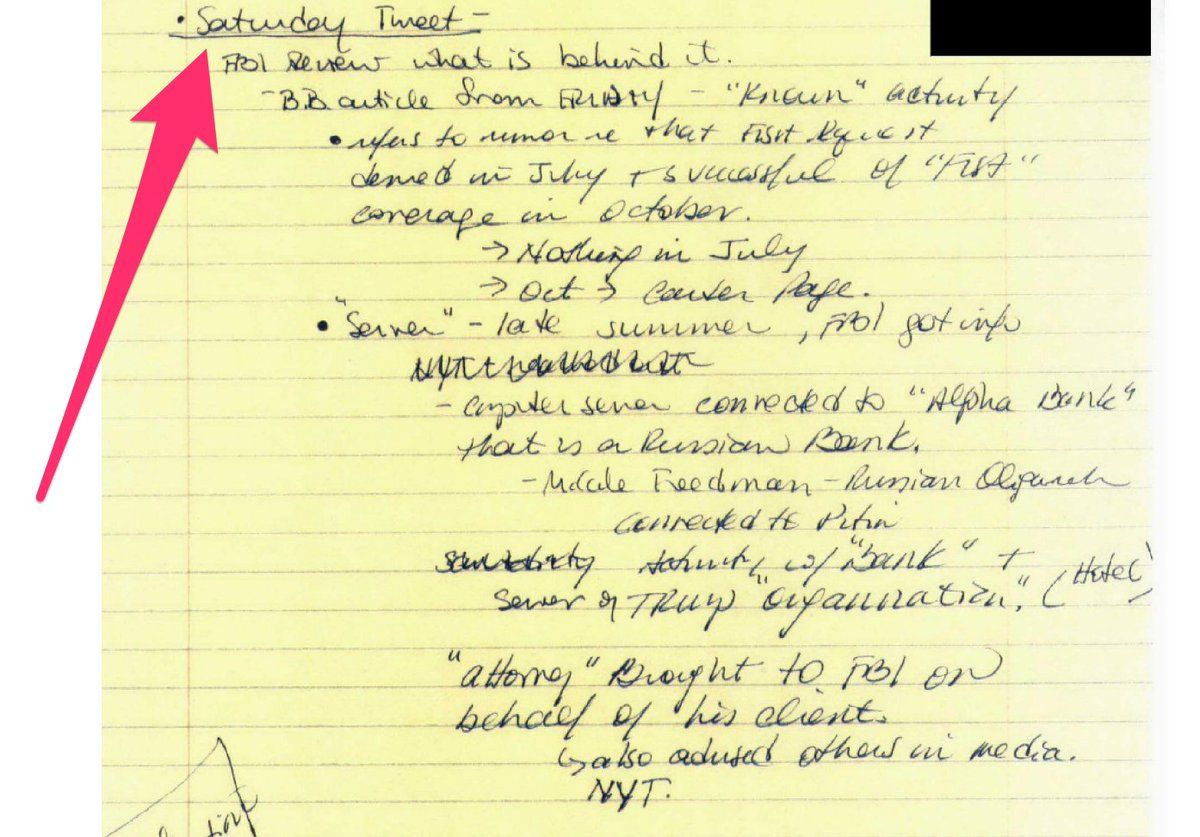 • Saturday Tweet -
FBI Review what is behind it.
- B.B. article from FRIDAY - "Known" activity
• refers to rumor re that FISA Request
denied in July + successful of "FISA"
coverage in October.
→ Nothing in July
→ Oct → Carter Page.
• "Server" - late summer, FBI got info
- computer server connected to "Alpha Bank"
that is a Russian Bank.
- Freedman - Russian Oligarch
connected to Putin
activity w/ "Bank" +
server of TRUMP "Organization". (Hotel)
"attorney" Brought to FBI on
behalf of his client.
↳ also advised others in media.
NYT.